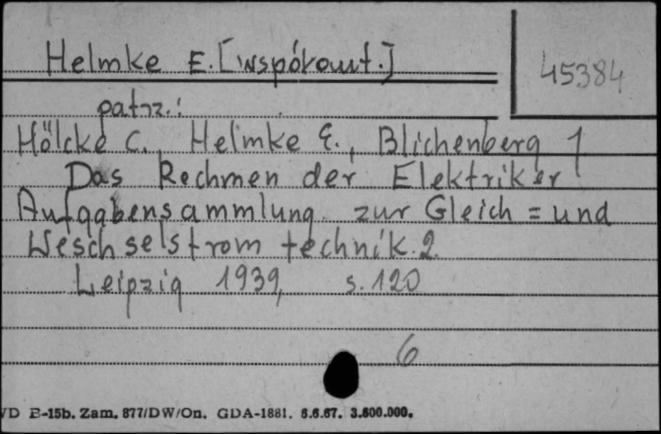 Helmke E. [współaut.]
45384
patrz:
Hölcke C., Helmke E., Blichenberg 1
Das Rechmen der Elektriker
Aufgabensammlung zur Gleich = und
Weschselstrom technik. 2.
Leipzig 1939, s. 120
6
VD E-15b. Zam. 877/DW/On. GDA-1881. 6.6.67. 3.600.000.